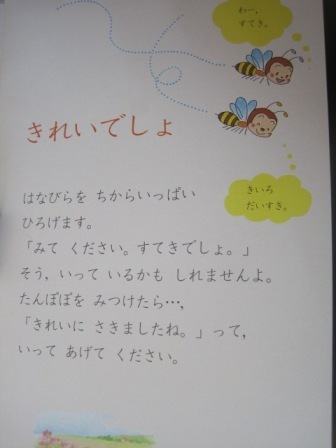 わー、
すてき。
きれいでしょ
きいろ
だいすき。
はなびらを ちからいっぱい
ひろげます。
「みて ください。すてきでしょ。」
そう、いって いるかも しれませんよ。
たんぽぽを みつけたら…、
「きれいに さきましたね。」って、
いって あげて ください。